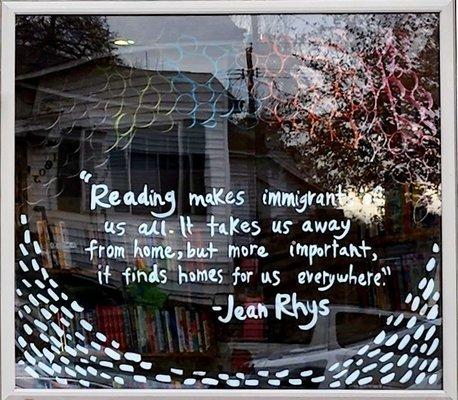 "Reading makes immigrants of
us all. It takes us away
from home, but more important,
it finds homes for us everywhere."
-Jean Rhys